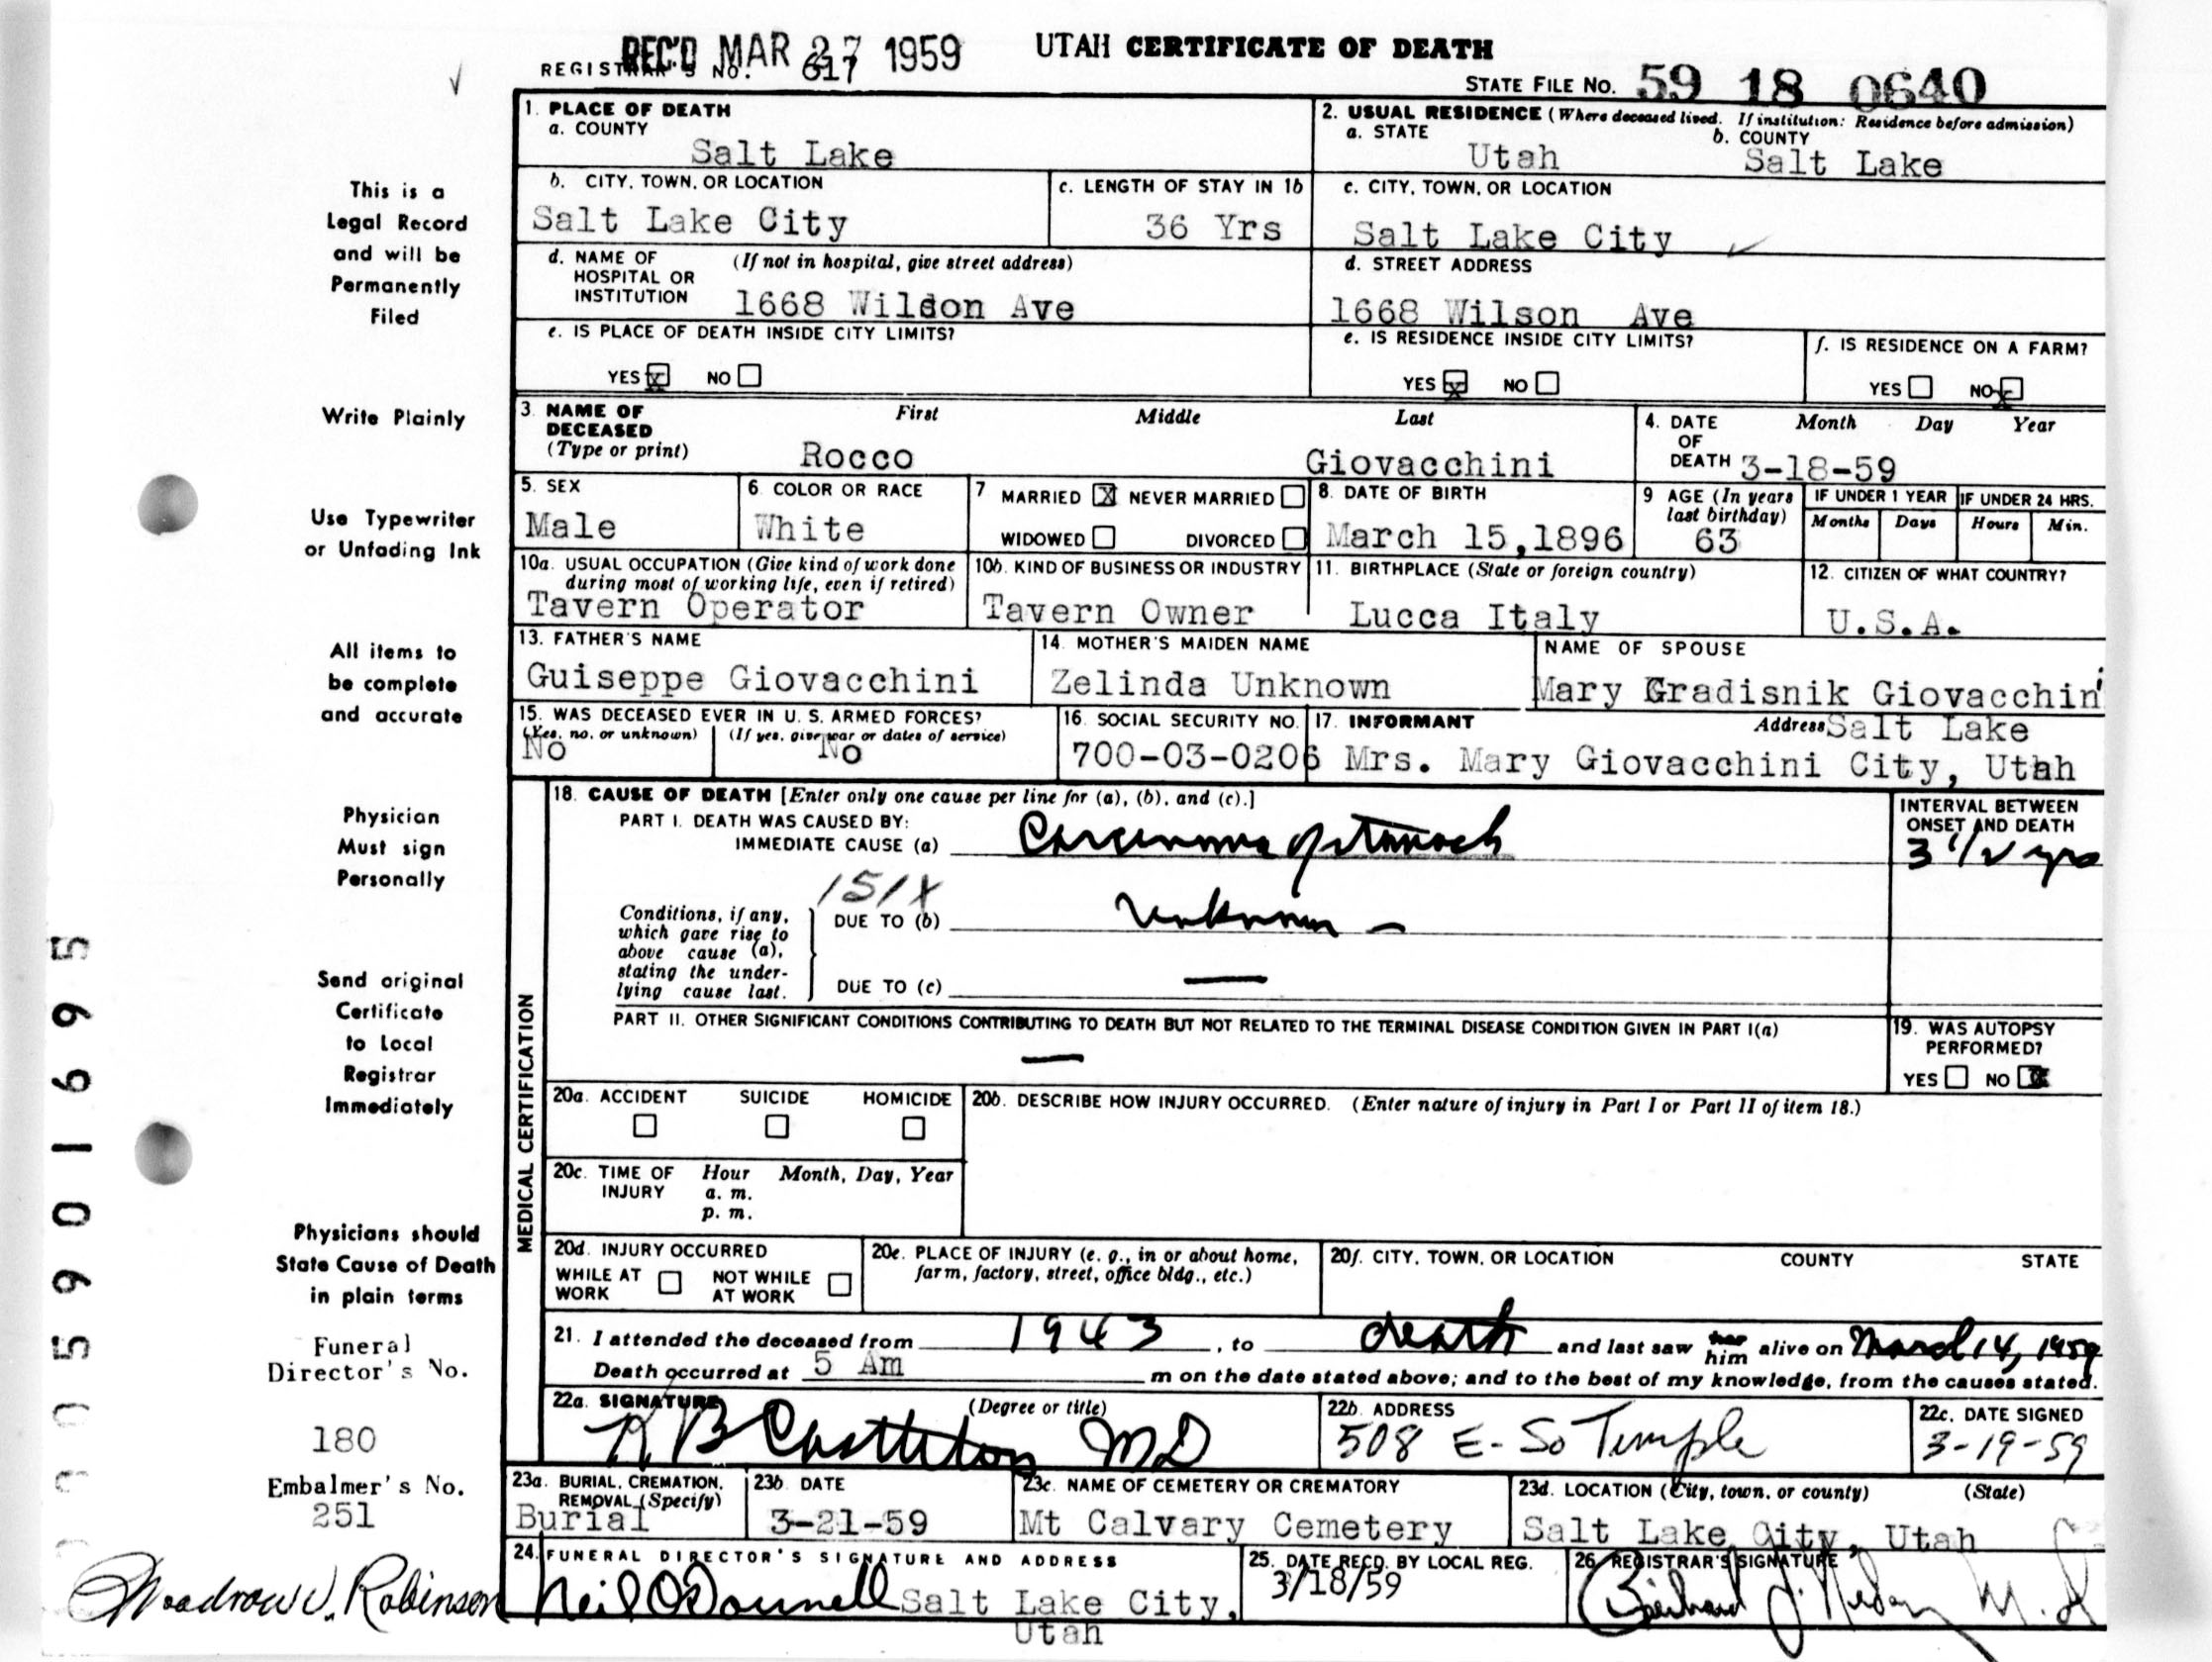 REC'D MAR 27 1959
UTAH CERTIFICATE OF DEATH
REGISTRAR'S NO. 617
STATE FILE NO. 59 18 0640
1. PLACE OF DEATH
a. COUNTY
Salt Lake
2. USUAL RESIDENCE (Where deceased lived. If institution: Residence before admission)
a. STATE
Utah
b. COUNTY
Salt Lake
b. CITY, TOWN, OR LOCATION
Salt Lake City
c. LENGTH OF STAY IN 1b
36 Yrs
c. CITY, TOWN, OR LOCATION
Salt Lake City
d. NAME OF HOSPITAL OR INSTITUTION
(If not in hospital, give street address)
1668 Wilson Ave
d. STREET ADDRESS
1668 Wilson Ave
e. IS PLACE OF DEATH INSIDE CITY LIMITS?
YES x NO
e. IS RESIDENCE INSIDE CITY LIMITS?
YES x NO
f. IS RESIDENCE ON A FARM?
YES NO x
3. NAME OF DECEASED
(Type or print)
First Middle Last
Rocco Giovacchini
4. DATE OF DEATH
Month Day Year
3-18-59
5. SEX
Male
6. COLOR OR RACE
White
7 MARRIED X NEVER MARRIED
WIDOWED DIVORCED
8. DATE OF BIRTH
March 15,1896
9 AGE (In years last birthday)
63
IF UNDER 1 YEAR
Months Days
IF UNDER 24 HRS.
Hours Min.
10a. USUAL OCCUPATION (Give kind of work done during most of working life, even if retired)
Tavern Operator
10b. KIND OF BUSINESS OR INDUSTRY
Tavern Owner
11. BIRTHPLACE (State or foreign country)
Lucca Italy
12. CITIZEN OF WHAT COUNTRY?
U.S.A.
13. FATHER'S NAME
Guiseppe Giovacchini
14. MOTHER'S MAIDEN NAME
Zelinda Unknown
NAME OF SPOUSE
Mary Gradisnik Giovacchini
15. WAS DECEASED EVER IN U. S. ARMED FORCES?
(Yes, no, or unknown)
No
(If yes, give war or dates of service)
No
16. SOCIAL SECURITY NO.
700-03-0206
17. INFORMANT
Address Salt Lake
Mrs. Mary Giovacchini City, Utah
MEDICAL CERTIFICATION
18. CAUSE OF DEATH [Enter only one cause per line for (a), (b), and (c).]
PART I. DEATH WAS CAUSED BY:
IMMEDIATE CAUSE (a) Carcinoma of stomach
INTERVAL BETWEEN ONSET AND DEATH
3 1/2 yrs
151X
Conditions, if any, which gave rise to above cause (a), stating the underlying cause last.
DUE TO (b) Unknown —
DUE TO (c) —
PART II. OTHER SIGNIFICANT CONDITIONS CONTRIBUTING TO DEATH BUT NOT RELATED TO THE TERMINAL DISEASE CONDITION GIVEN IN PART I(a)
—
19. WAS AUTOPSY PERFORMED?
YES NO X
20a. ACCIDENT SUICIDE HOMICIDE
20b. DESCRIBE HOW INJURY OCCURRED. (Enter nature of injury in Part I or Part II of item 18.)
20c. TIME OF INJURY
Hour Month, Day, Year
a. m.
p. m.
20d. INJURY OCCURRED
WHILE AT WORK
NOT WHILE AT WORK
20e. PLACE OF INJURY (e. g., in or about home, farm, factory, street, office bldg., etc.)
20f. CITY, TOWN, OR LOCATION COUNTY STATE
21. I attended the deceased from 1943, to death and last saw her him alive on March 14, 1959
Death occurred at 5 Am m on the date stated above; and to the best of my knowledge, from the causes stated.
22a. SIGNATURE (Degree or title)
K B Castleton MD
22b. ADDRESS
508 E - So Temple
22c. DATE SIGNED
3-19-59
23a. BURIAL, CREMATION, REMOVAL (Specify)
Burial
23b. DATE
3-21-59
23c. NAME OF CEMETERY OR CREMATORY
Mt Calvary Cemetery
23d. LOCATION (City, town, or county) (State)
Salt Lake City, Utah
24. FUNERAL DIRECTOR'S SIGNATURE AND ADDRESS
Neil O'Donnell Salt Lake City,
Utah
25. DATE RECD. BY LOCAL REG.
3/18/59
26. REGISTRAR'S SIGNATURE
M.D.
This is a
Legal Record
and will be
Permanently
Filed
Write Plainly
Use Typewriter
or Unfading Ink
All items to
be complete
and accurate
Physician
Must sign
Personally
Send original
Certificate
to Local
Registrar
Immediately
Physicians should
State Cause of Death
in plain terms
Funeral
Director's No.
180
Embalmer's No.
251
Woodrow J. Robinson
005901695